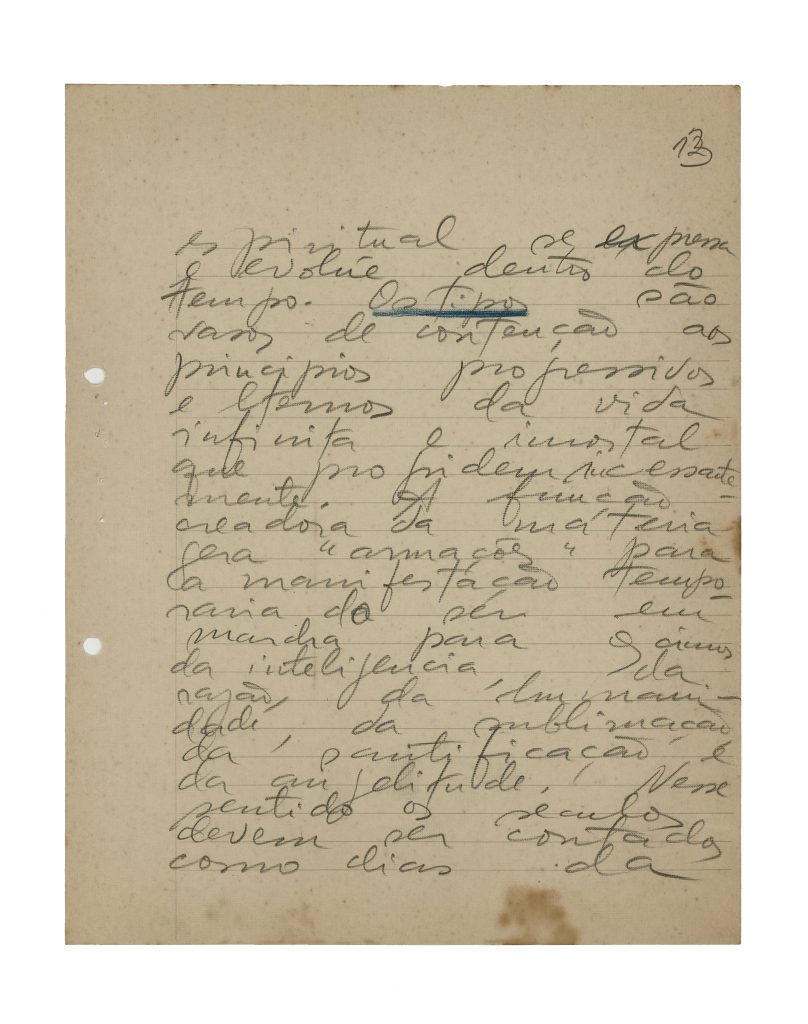 13
espiritual se expressa
e evolúe dentro do
tempo. Os tipos são
vasos de contenção aos
principios progressivos
e eternos da vida
infinita e imortal
que progridem incessante-
mente. A função
creadora da matéria
gera "armações" para
a manifestação tempo-
raria do sêr em
marcha para os cimos
da inteligencia, da
razão, da humani-
dade, da sublimação
da santificação e
da angelitude. Nesse
sentido os seculos
devem ser contados
como dias da